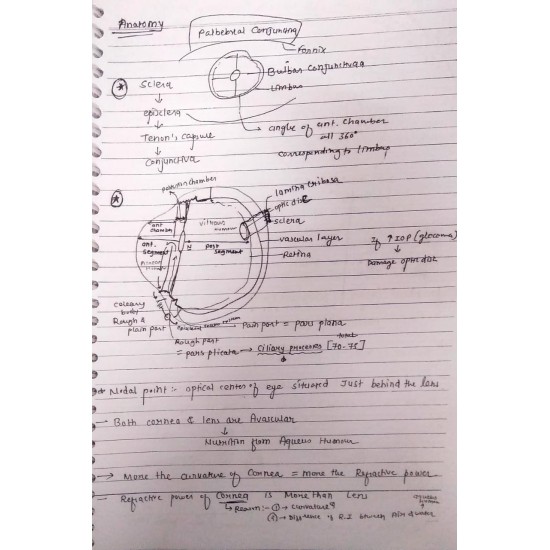 Anatomy
Palbebral Conjunctiva
Fornix
Bulbar conjunctiva
Limbus
Sclera
↓
episclera
↓
Tenon's capsule
↓
Conjunctiva
→ angle of ant. chamber
all 360°
corresponding to limbus
ant chamber
vitrous humour
ant. segment
post segment
lamina cribosa
optic disc
sclera
vascular layer
Retina
If ↑ IOP (glocoma)
↓
Damage optic disc
body
Rough &
plain part
→ Pain part = pars plana
Rough part
= pars plicata → Ciliary processes [70-75]
total
Nodal point :- optical center of eye situated Just behind the lens
- Both cornea & lens are Avascular
↓
Nutrition from Aqueous Humour
→ More the curvature of Cornea = more the Refractive power.
- Refractive power of Cornea is More than Lens
↳ Reason:- ① → curvature
② → Difference of R.I between Air &